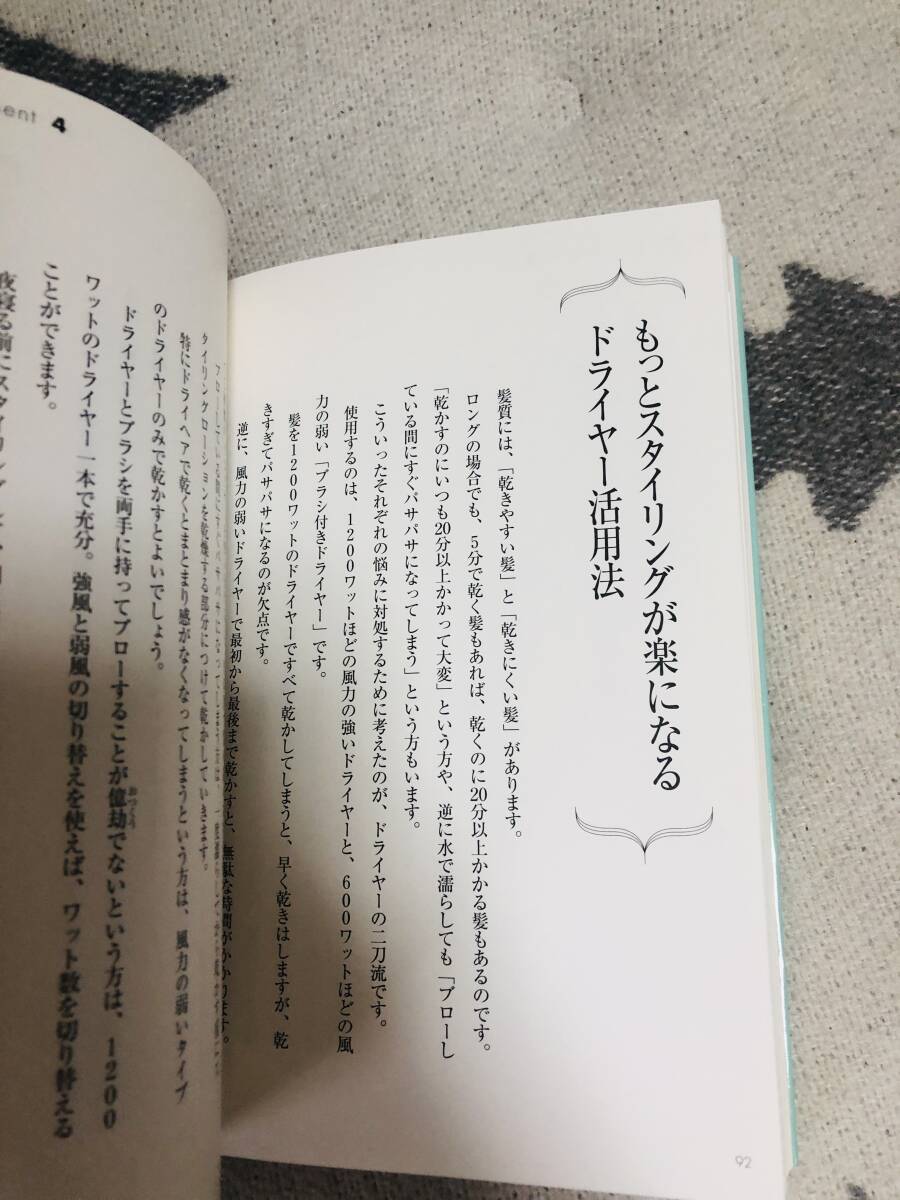 もっとスタイリングが楽になる
ドライヤー活用法
髪質には、「乾きやすい髪」と「乾きにくい髪」があります。
ロングの場合でも、5分で乾く髪もあれば、乾くのに20分以上かかる髪もあるのです。
「乾かすのにいつも20分以上かかって大変」という方や、逆に水で濡らしても「ブローし
ている間にすぐパサパサになってしまう」という方もいます。
こういったそれぞれの悩みに対処するために考えたのが、ドライヤーの二刀流です。
使用するのは、1200ワットほどの風力の強いドライヤーと、600ワットほどの風
力の弱い「ブラシ付きドライヤー」です。
髪を1200ワットのドライヤーですべて乾かしてしまうと、早く乾きはしますが、乾
きすぎてパサパサになるのが欠点です。
逆に、風力の弱いドライヤーで最初から最後まで乾かすと、無駄な時間がかかります。
92
ent 4
タイリングローションを乾燥する部分につけて乾かしていきます。
特にドライヘアで乾くとまとまり感がなくなってしまうという方は、風力の弱いタイプ
のドライヤーのみで乾かすとよいでしょう。
ドライヤーとブラシを両手に持ってブローすることが億劫でないという方は、1200
おっくう
ワットのドライヤー一本で充分。強風と弱風の切り替えを使えば、ワット数を切り替える
ことができます。
夜寝る前にスタイリング